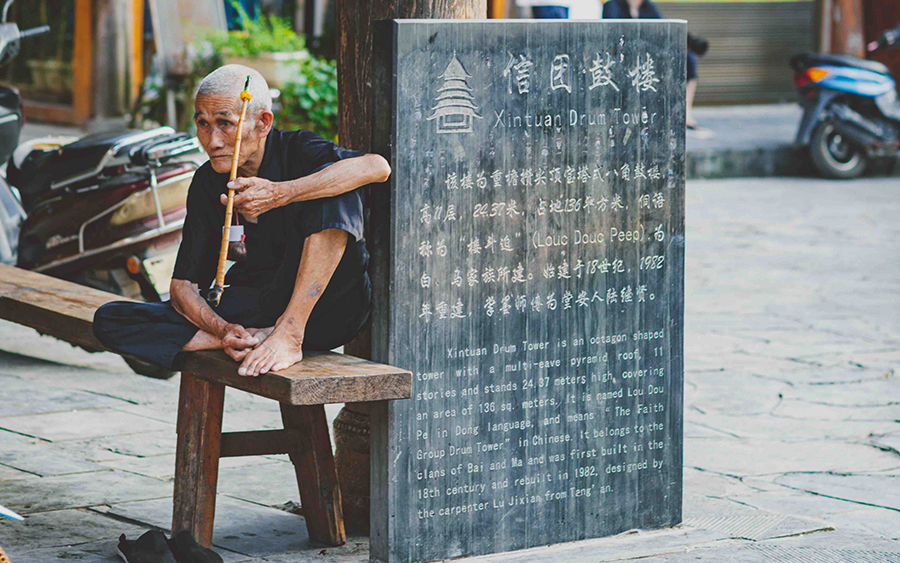 信团鼓楼
Xintuan Drum Tower
该楼为重檐攒尖顶宝塔式八角鼓楼，
高11层，24.37米，占地136平方米，侗语
称为“楼斗迫”(Louc Douc Peep)，为
白、马家族所建。始建于18世纪，1982
年重建，掌墨师傅为堂安人陆继贤。
Xintuan Drum Tower is an octagon shaped
tower with a multi-eave pyramid roof, 11
stories and stands 24.37 meters high, covering
an area of 136 sq. meters. It is named Lou Dou
Pe in Dong language, and means “The Faith
Group Drum Tower” in Chinese. It belongs to the
clans of Bai and Ma and was first built in the
18th century and rebuilt in 1982, designed by
the carpenter Lu Jixian from Tang’an.